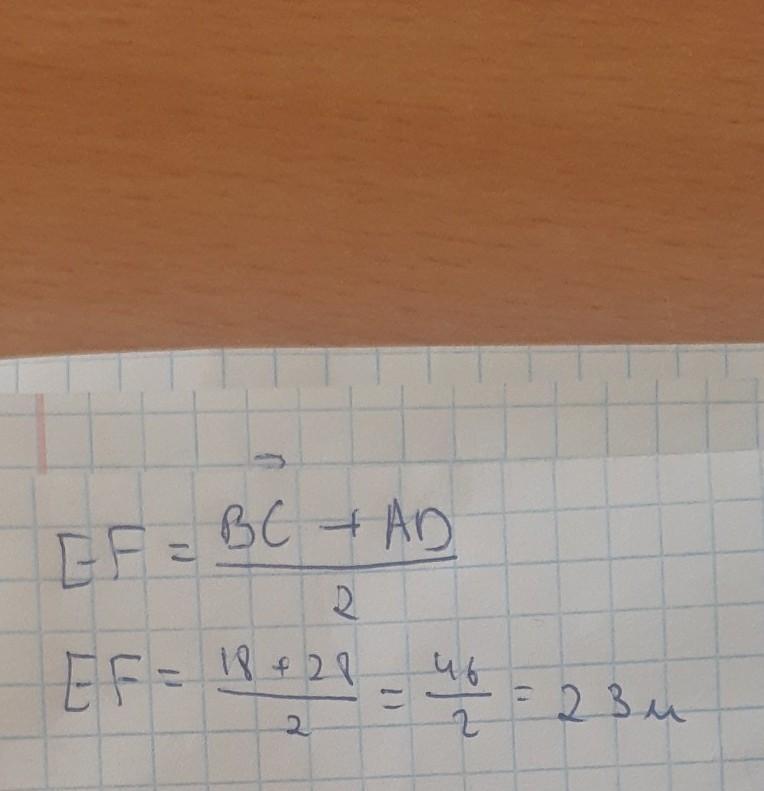 EF = BC + AD / 2
EF = 18 + 28 / 2 = 46 / 2 = 23 м